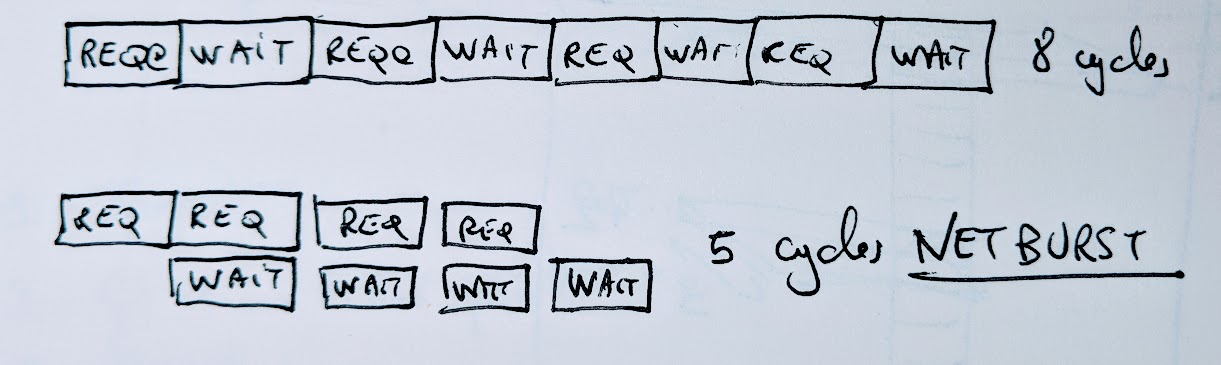 REQQ WAIT REQQ WAIT REQ WAIT REQ WAIT 8 cycles
REQ REQ REQ REQ
WAIT WAIT WAIT WAIT 5 cycles NETBURST